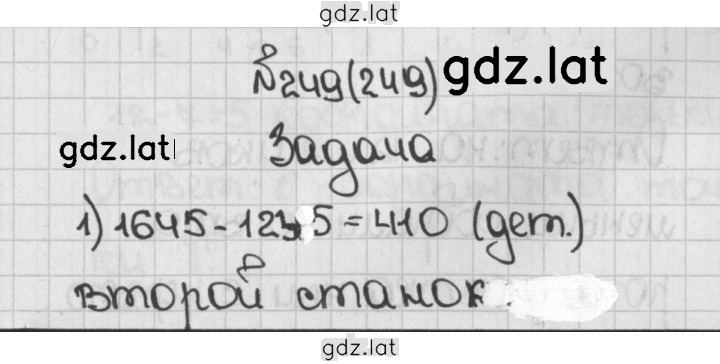 gdz.lat
№249(249) gdz.lat
gdz.lat
Задача
1) 1645-1235=410 (дет.)
второй станок.
gdz.lat